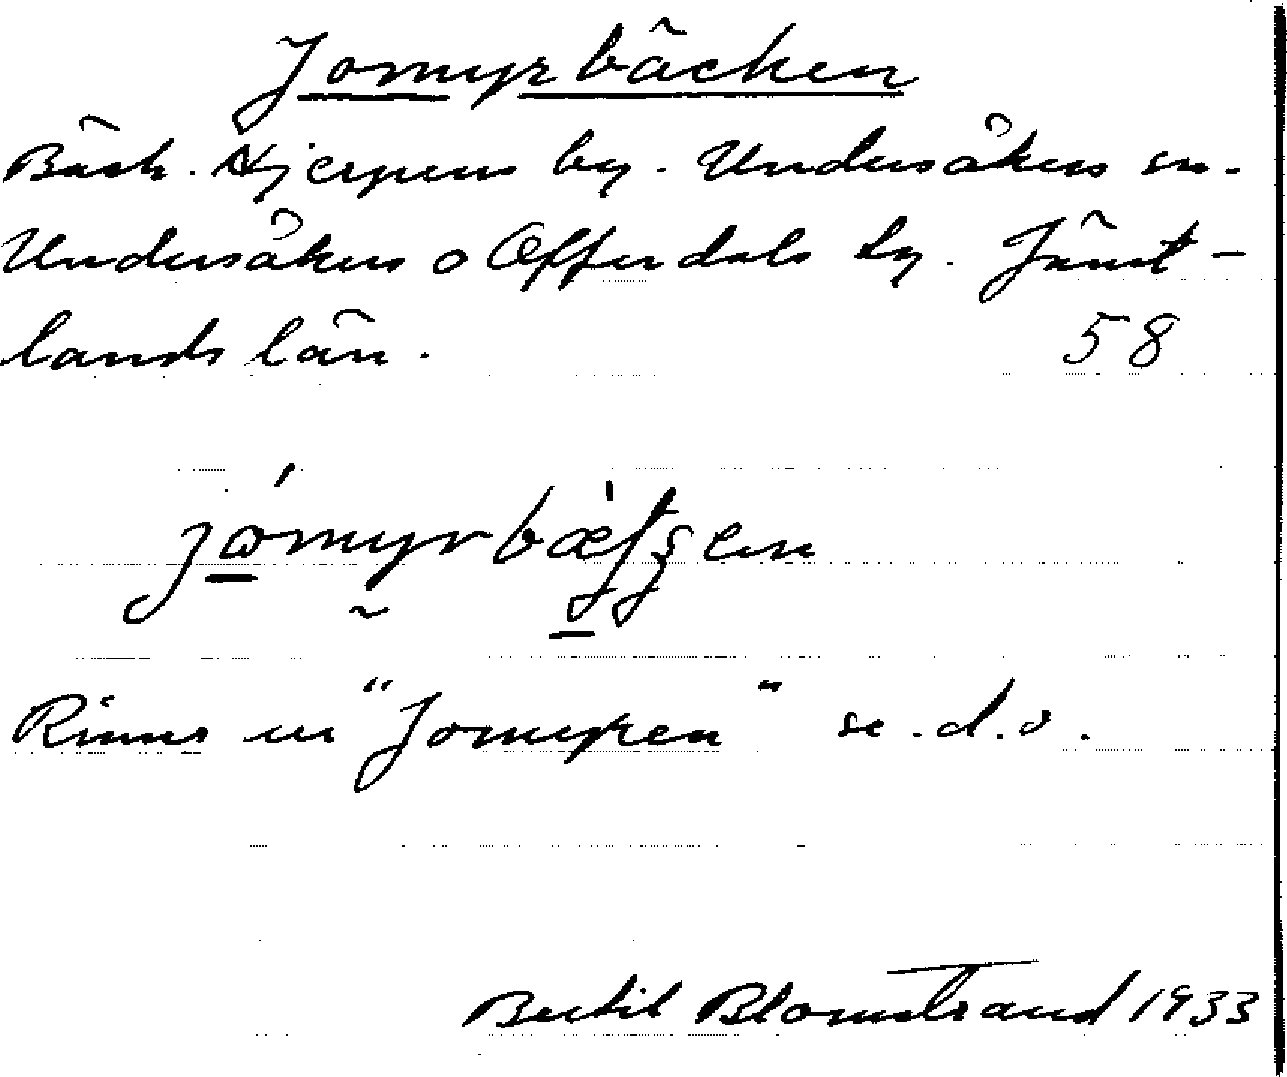 Jomyrbäcken
Bäck. Hjerpens by. Undersåkers sn.
Undersåkers o Offerdals tg. Jämt-
lands län. 58
Rinner ur "Jomyren" se.d.o.
Bertil Blomstrand 1933